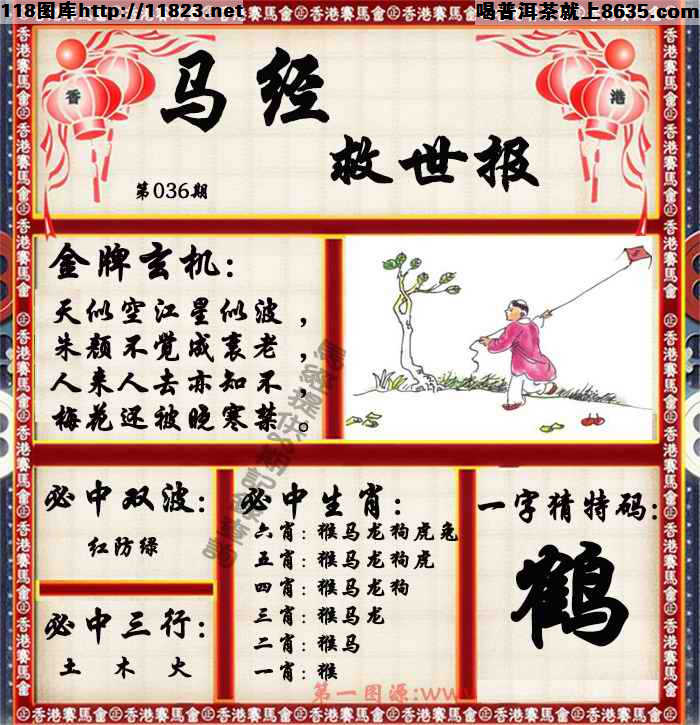 118图库http://11823.net
喝普洱茶就上8635.com
香港賽馬會
香
港
马经
救世报
第036期
金牌玄机：
天似空江星似波，
朱颜不覺成衰老，
人来人去亦知不，
梅花还被晚寒禁。
必中双波：
红防绿
必中三行：
土 木 火
必中生肖：
六肖：猴马龙狗虎兔
五肖：猴马龙狗虎
四肖：猴马龙狗
三肖：猴马龙
二肖：猴马
一肖：猴
一字猜特码：
鹤
第一图源:www